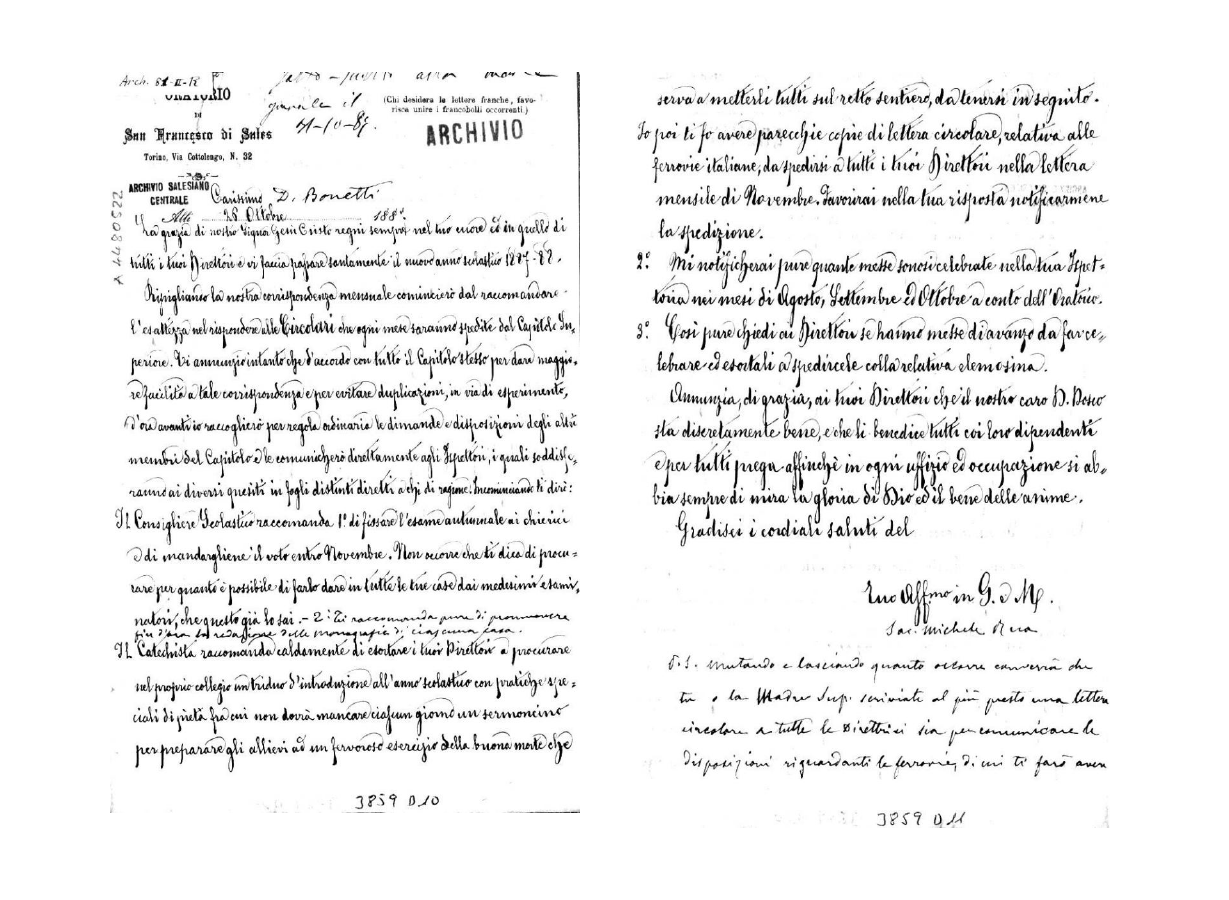 Arch. 81-II-12
ORATORIO
DI
San Francesco di Sales
Torino, Via Cottolengo, N. 32
il
31-10-87.
(Chi desidera le lettere franche, favo-
risca unire i francobolli occorrenti.)
ARCHIVIO
ARCHIVIO SALESIANO
CENTRALE
A 4480522
Carissimo D. Bonetti
Alli 25 Ottobre 1887
La grazia di nostro Signor Gesù Cristo regni sempre nel tuo cuore ed in quello di
tutti i tuoi Direttori e vi faccia passare santamente il nuovo anno scolastico 1887-88.
Ripigliando la nostra corrispondenza mensuale comincierò dal raccomandare
l'esattezza nel rispondere alle Circolari che ogni mese saranno spedite dal Capitolo Su-
periore. Ti annunzio intanto che d'accordo con tutto il Capitolo stesso per dare maggio-
re facilità a tale corrispondenza e per evitare duplicazioni, in via di esperimento,
d'ora avanti io raccoglierò per regola ordinaria le dimande e disposizioni degli altri
membri del Capitolo e le comunicherò direttamente agli Ispettori, i quali soddisfe-
ranno ai diversi quesiti in fogli distinti diretti a chi di ragione. Incominciando ti dirò:
Il Consigliere Scolastico raccomanda 1.° di fissare l'esame autunnale ai chierici
e di mandargliene il voto entro Novembre. Non occorre che ti dica di procu-
rare per quanto è possibile di farlo dare in tutte le tue case dai medesimi esami-
natori, che questo già lo sai. - 2.° Ti raccomanda pure di promuovere
fin d'ora la redazione delle monografie di ciascuna casa.
Il Catechista raccomanda caldamente di esortare i tuoi Direttori a procurare
nel proprio collegio un triduo d'introduzione all'anno scolastico con pratiche spe-
ciali di pietà fra cui non dovrà mancare ciascun giorno un sermoncino
per preparare gli allievi ad un fervoroso esercizio della buona morte che
3859 D 10
serva a metterli tutti sul retto sentiero, da tenersi in seguito.
Io poi ti fo avere parecchie copie di lettera circolare, relativa alle
ferrovie italiane, da spedirsi a tutti i tuoi Direttori nella lettera
mensile di Novembre. Favorirai nella tua risposta notificarmene
la spedizione.
2.° Mi notificherai pure quante messe sonosi celebrate nella tua Ispet-
toria nei mesi di Agosto, Settembre ed Ottobre a conto dell'Oratorio.
3.° Così pure chiedi ai Direttori se hanno messe di avanzo da far ce-
lebrare ed esortali a spedircele colla relativa elemosina.
Annunzia, di grazia, ai tuoi Direttori che il nostro caro D. Bosco
sta discretamente bene, e che li benedice tutti coi loro dipendenti
e per tutti prega affinchè in ogni uffizio ed occupazione si ab-
bia sempre di mira la gloria di Dio ed il bene delle anime.
Gradisci i cordiali saluti del
Tuo Aff.mo in G. e M.
Sac. Michele Rua
P.S. Mutando e lasciando quanto occorre converrà che
tu e la Madre Sup. scriviate al più presto una lettera
circolare a tutte le Direttrici sia per comunicare le
disposizioni riguardanti le ferrovie, di cui ti farò avere
3859 D 11